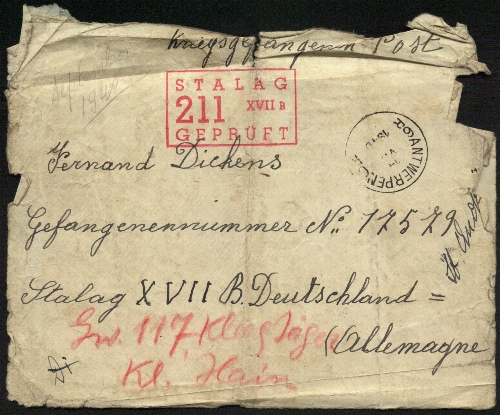 Kriegsgefangenen Post
STALAG
211 XVII B
GEPRÜFT
ANTWERPEN
Fernand Dickens
Gefangenennummer No: 17579
Stalag XVII B. Deutschland =
(Allemagne
Gw. 117
Kl. Hain